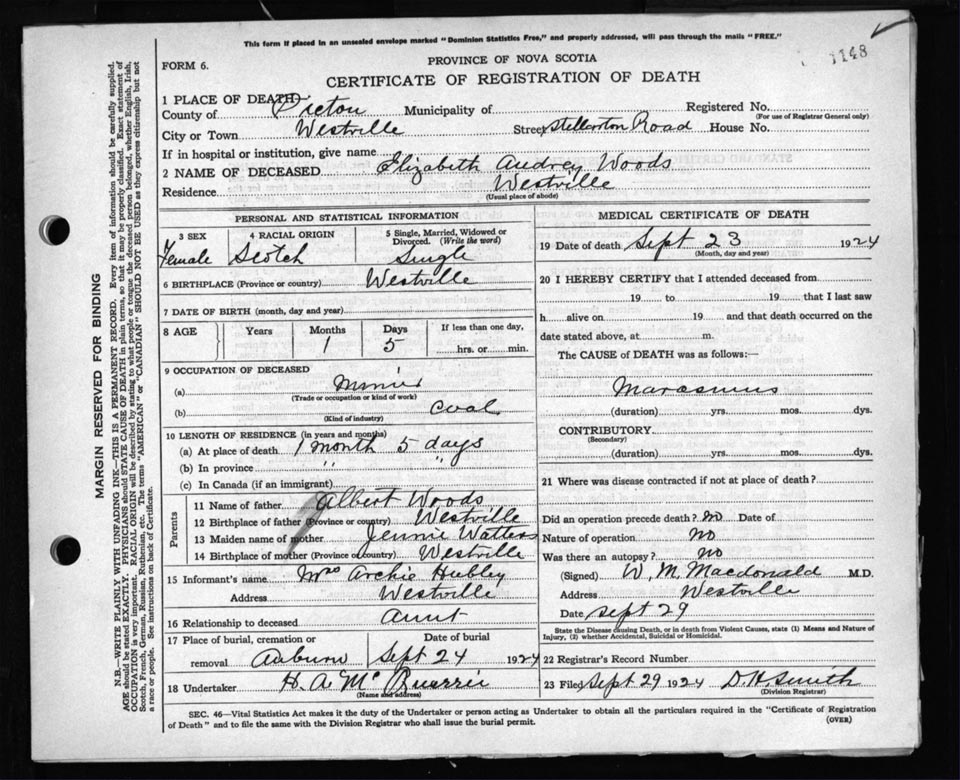 This form if placed in an unsealed envelope marked "Dominion Statistics Free," and properly addressed, will pass through the mails "FREE."
1148
FORM 6.
PROVINCE OF NOVA SCOTIA
CERTIFICATE OF REGISTRATION OF DEATH
1 PLACE OF DEATH
County of Pictou Municipality of Registered No.
(For use of Registrar General only)
City or Town Westville Street Stellarton Road House No.
If in hospital or institution, give name
2 NAME OF DECEASED Elizabeth Audrey Woods
Residence Westville
(Usual place of abode)
PERSONAL AND STATISTICAL INFORMATION
3 SEX 4 RACIAL ORIGIN 5 Single, Married, Widowed or Divorced. (Write the word)
Female Scotch Single
6 BIRTHPLACE (Province or country) Westville
7 DATE OF BIRTH (month, day and year)
8 AGE Years Months Days If less than one day,
1 5 hrs. or min.
9 OCCUPATION OF DECEASED
(a)
(Trade or occupation or kind of work)
(b) Coal
(Kind of industry)
10 LENGTH OF RESIDENCE (in years and months)
(a) At place of death 1 month 5 days
(b) In province " "
(c) In Canada (if an immigrant)
Parents
11 Name of father Albert Woods
12 Birthplace of father (Province or country) Westville
13 Maiden name of mother Jennie Watters
14 Birthplace of mother (Province or country) Westville
15 Informant's name Mrs Archie Hubley
Address Westville
16 Relationship to deceased aunt
17 Place of burial, cremation or removal Auburn
Date of burial Sept 24 1924
18 Undertaker H. A. McQuarrie
(Name and address)
MEDICAL CERTIFICATE OF DEATH
19 Date of death Sept 23 1924
(Month, day and year)
20 I HEREBY CERTIFY that I attended deceased from
19 to 19 that I last saw
h alive on 19 and that death occurred on the
date stated above, at m.
The CAUSE of DEATH was as follows:—
Marasmus
(duration) yrs. mos. dys.
CONTRIBUTORY
(Secondary)
(duration) yrs. mos. dys.
21 Where was disease contracted if not at place of death?
Did an operation precede death? no Date of
Nature of operation no
Was there an autopsy? no
(Signed) W. M. Macdonald M.D.
Address Westville
Date Sept 29
State the Disease causing Death, or in death from Violent Causes, state (1) Means and Nature of
Injury, (2) whether Accidental, Suicidal or Homicidal.
22 Registrar's Record Number
23 Filed Sept 29 1924 D. H. Smith
(Division Registrar)
SEC. 46—Vital Statistics Act makes it the duty of the Undertaker or person acting as Undertaker to obtain all the particulars required in the "Certificate of Registration
of Death" and to file the same with the Division Registrar who shall issue the burial permit.
(OVER)
MARGIN RESERVED FOR BINDING
N.B.—WRITE PLAINLY WITH UNFADING INK—THIS IS A PERMANENT RECORD. Every item of information should be carefully supplied.
AGE should be stated EXACTLY. PHYSICIANS should STATE CAUSE OF DEATH in plain terms, so that it may be properly classified. Exact statement of
OCCUPATION is very important. RACIAL ORIGIN will be described by stating to what people or tongue the deceased person belonged, whether English, Irish,
Scotch, French, German, Russian, Ruthenian, etc. The terms "AMERICAN" or "CANADIAN" SHOULD NOT BE USED as they express citizenship but not
a race or people. See instructions on back of Certificate.